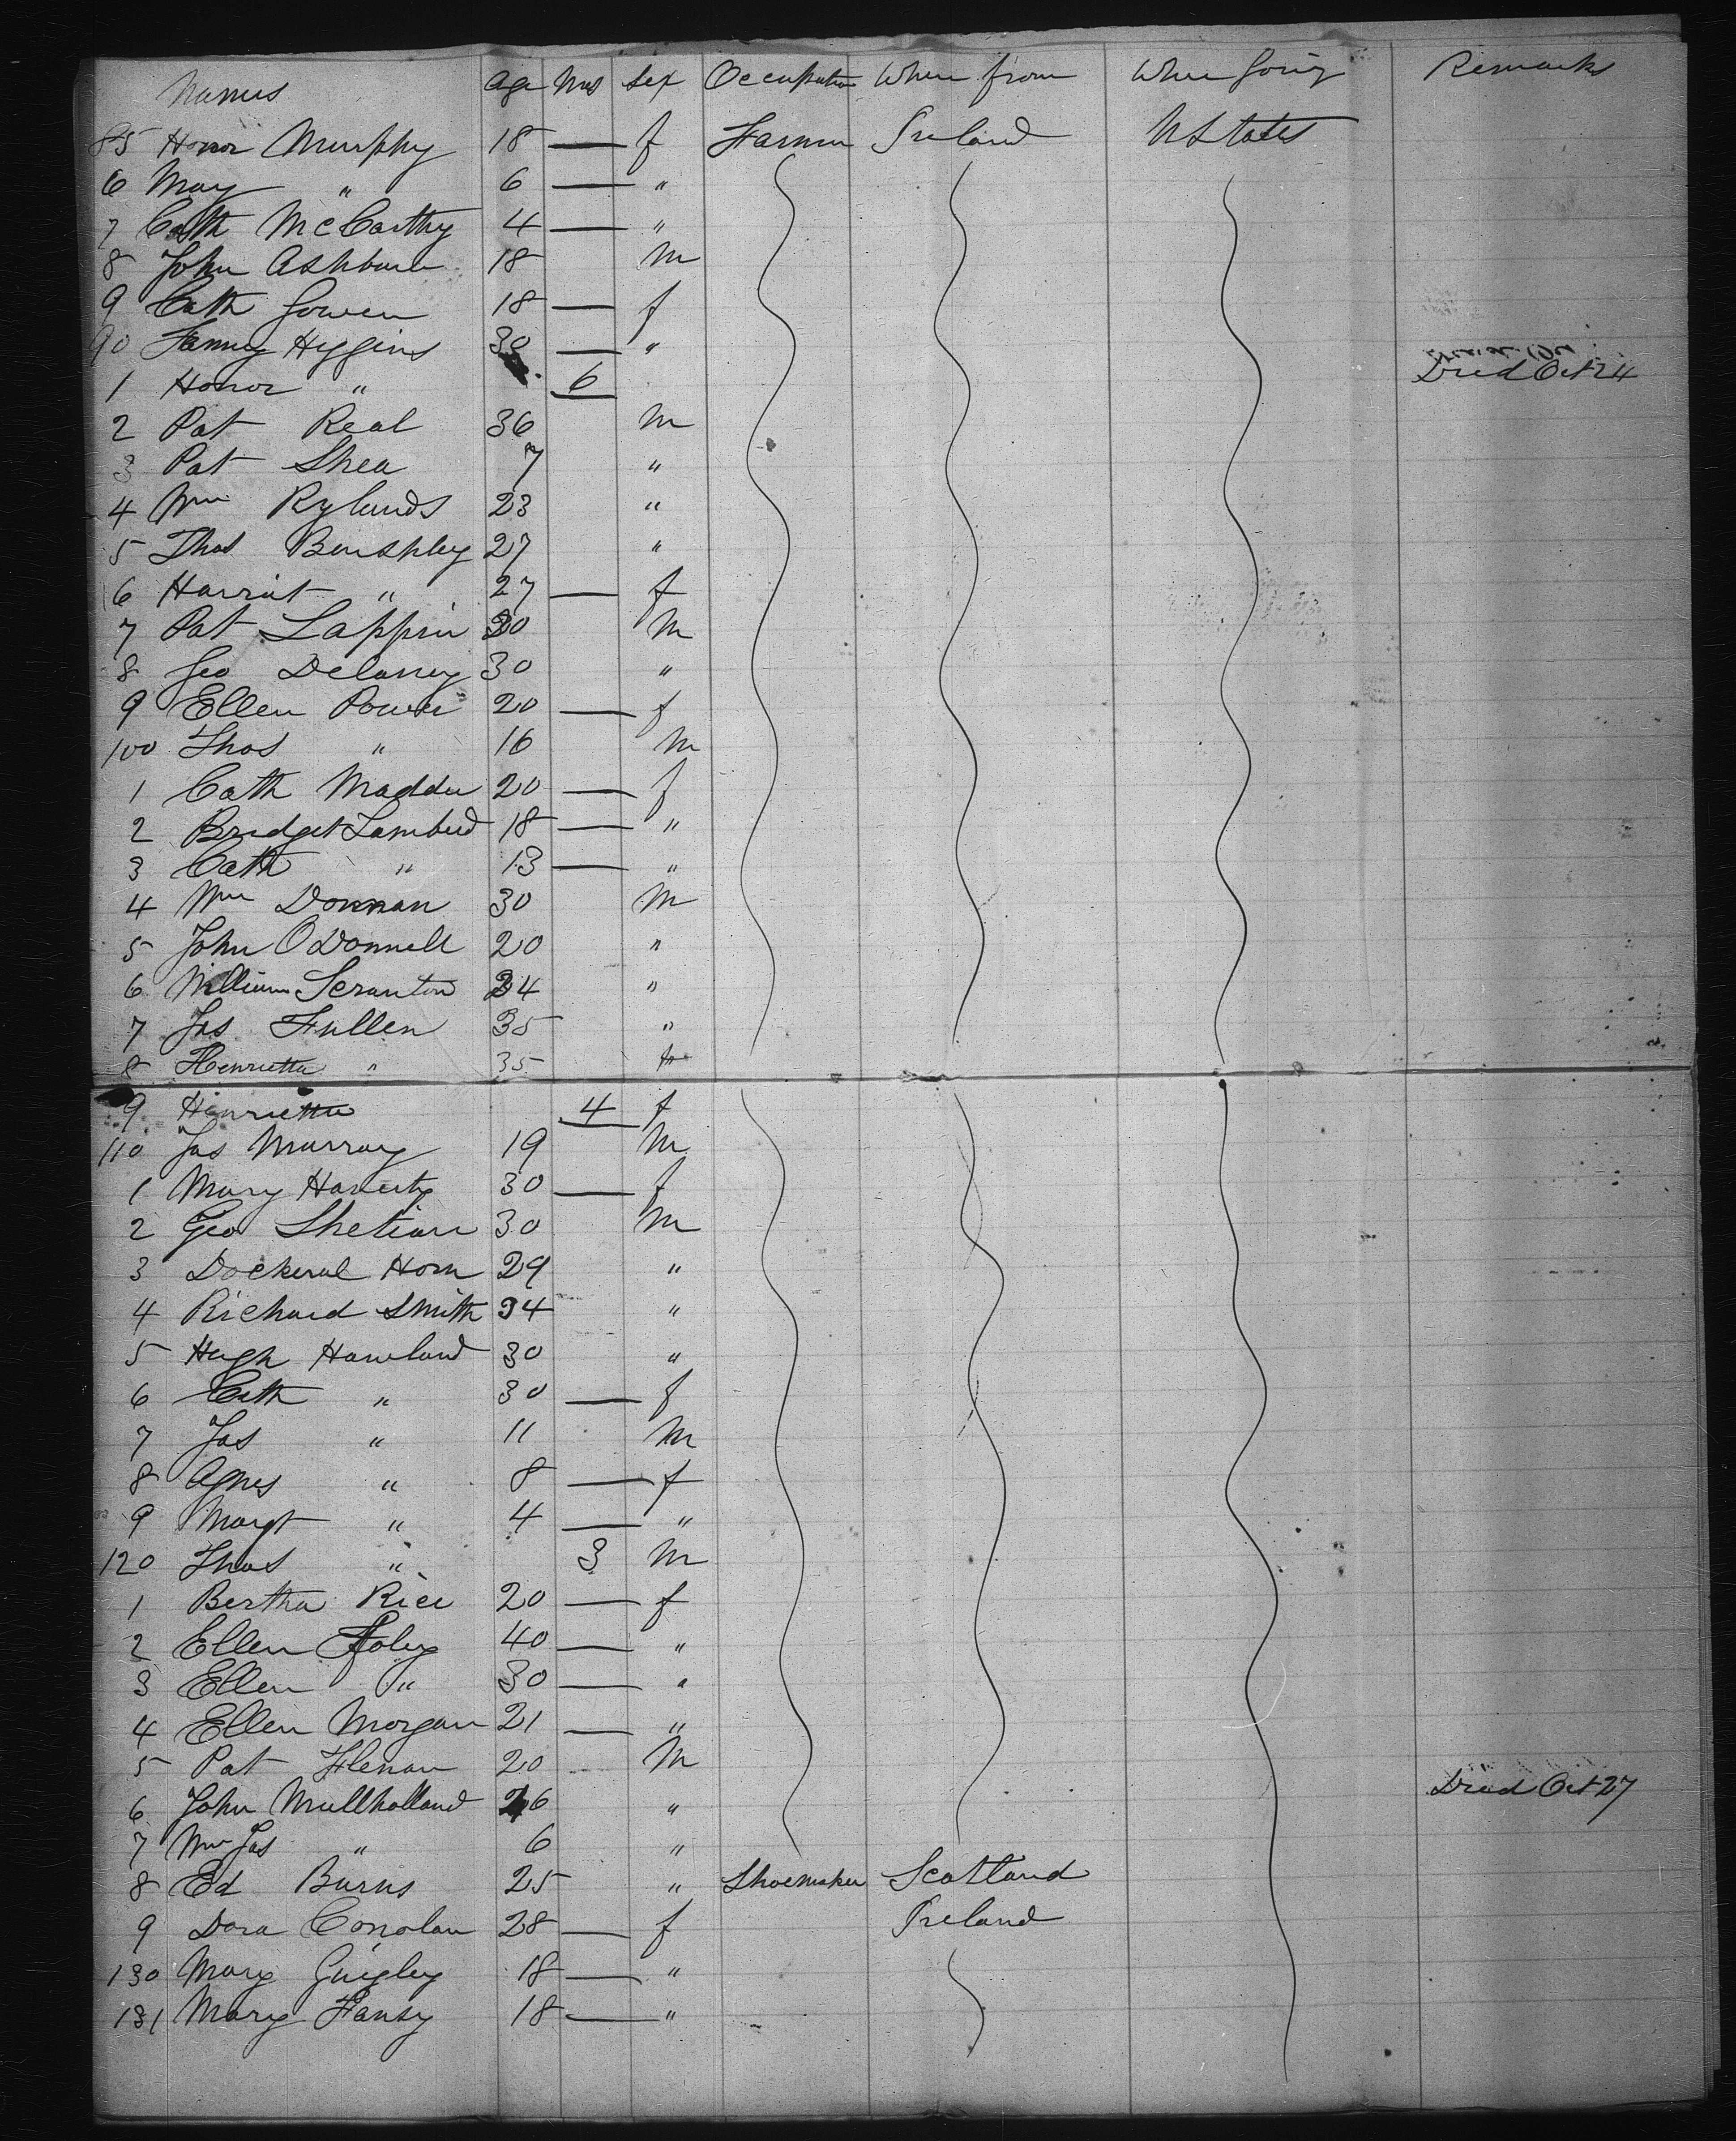 Names Age Mos Sex Occupation Where from Where going Remarks
85 Honor Murphy 18 — f Farmer Ireland UStates
6 May " 6 — "
7 Cath McCarthy 4 — "
8 John Ashburn 18 m
9 Cath Gowen 18 — f
90 Fanny Higgins 30 — "
1 Honor " 6 Died Oct 24
2 Pat Real 36 m
3 Pat Shea 7 "
4 Wm Rylands 23 "
5 Thos Benshley 27 "
6 Harriet " 27 — f
7 Pat Lappin 30 m
8 Geo Delaney 30 "
9 Ellen Power 20 — f
100 Thos " 16 m
1 Cath Madden 20 — f
2 Bridget Lamberd 18 — "
3 Cath " 13 — "
4 Wm Donnan 30 m
5 John ODonnell 20 "
6 William Scranton 34 "
7 Jas Fullen 35 "
8 Henrietta " 35
9 Henrietta 4 f
110 Jas Murray 19 m
1 Mary Haverty 30 — f
2 Geo Shetian 30 m
3 Dockeral Horn 29 "
4 Richard Smith 34 "
5 Hugh Hawland 30 "
6 Cath " 30 — f
7 Jas " 11 m
8 Agnes " 8 — f
9 Margt " 4 — "
120 Thos " 3 m
1 Bertha Rice 20 — f
2 Ellen Foley 40 — "
3 Ellen " 30 — "
4 Ellen Morgan 21 — "
5 Pat Flenan 20 m
6 John Mullholland 26 " Died Oct 27
7 Wm Jas " 6 "
8 Ed Burns 25 " Shoemaker Scotland
9 Dora Conolan 28 — f Ireland
130 Mary Quigley 18 — "
131 Mary Fansy 18 — "